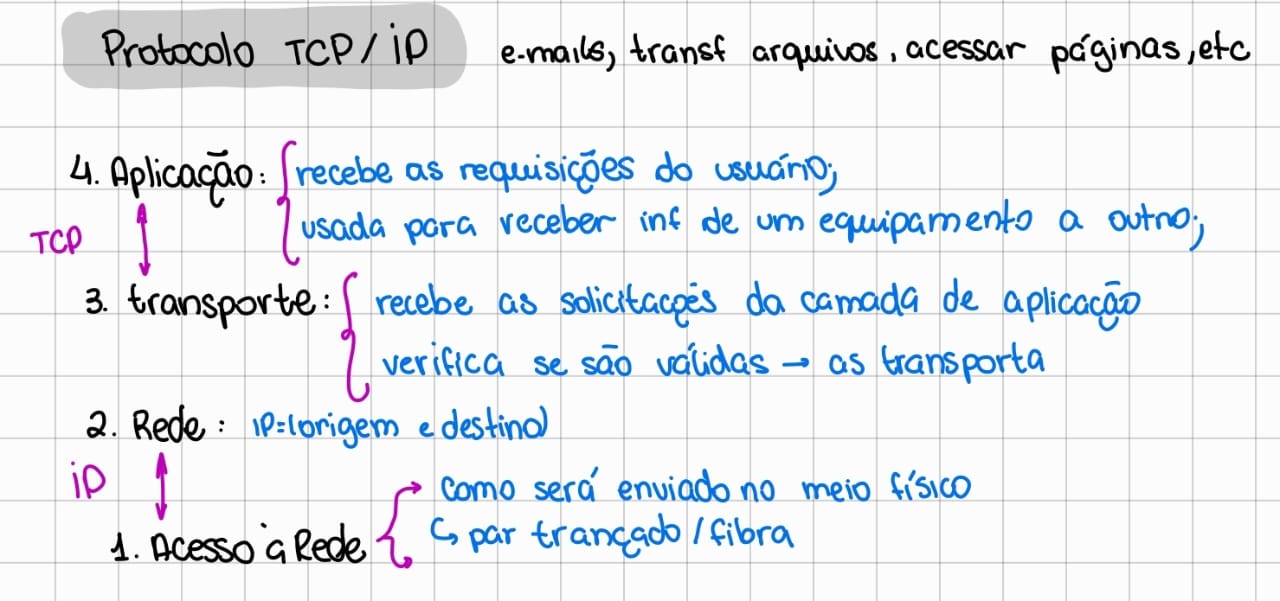 Protocolo TCP/iP e-mails, transf arquivos, acessar páginas, etc
4. Aplicação: recebe as requisições do usuário;
usada para receber inf de um equipamento a outro;
TCP
3. transporte: recebe as solicitações da camada de aplicação
verifica se são válidas → as transporta
2. Rede: IP=(origem e destino)
iP
como será enviado no meio físico
1. Acesso à Rede ↳ par trançado / fibra